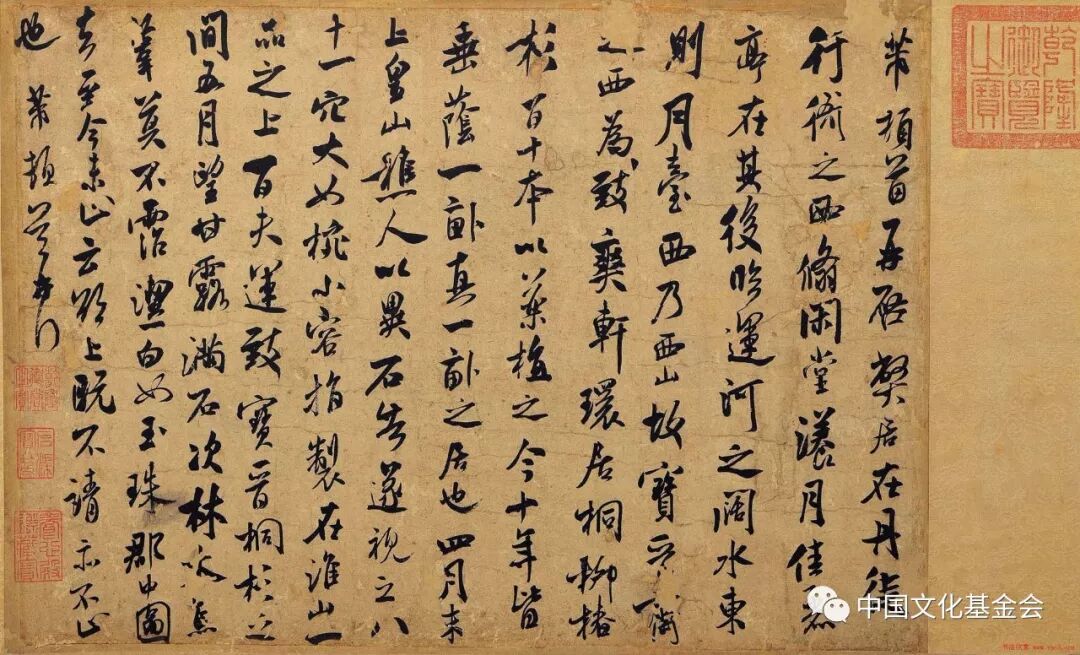 乾隆御覽之寶
芾頓首再啓弊居在丹徒
行衙之西翛閑堂漾月佳麗
亭在其後臨運河之闊水東
則月臺西乃西山故寶晉齋
之西為致爽軒環居桐柳椿
杉百十本以藥植之今十年皆
垂蔭一畝真一畝之居也四月末
上皇山樵人以異石告遂視之八
十一穴大如椀小容指製在淮山一
品之上百夫運致寶晉桐杉之
間五月望甘露滿石次林木焉
莫不霑潔白如玉珠郡中圖
去至今未止云欲上既不請亦不止
也芾頓首再拜
中国文化基金会